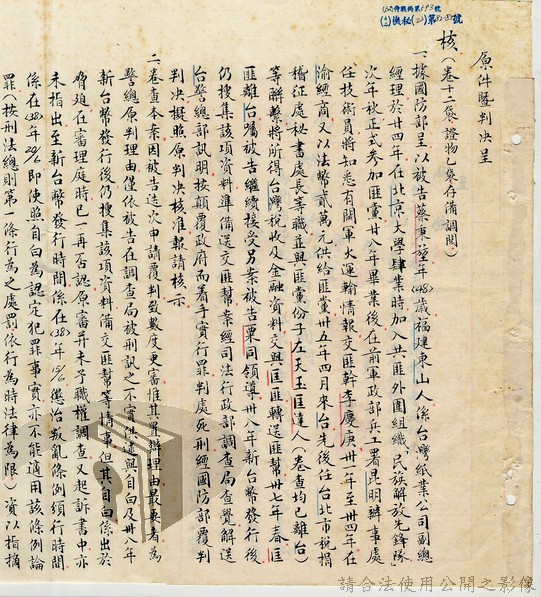 (62)侍戰興第593號
(62)機秘(乙)第52-52號
原件暨判決呈
核(卷十二袋證物乙袋存備調閱)
一、據國防部呈以被告蔡東塗年(48)歲福建東山人係台灣紙業公司副總
經理於廿四年在北京大學肄業時加入共匪外圍組織「民族解放先鋒隊」
次年秋正式參加匪黨廿八年畢業後在前軍政部兵工署昆明辦事處
任技術員將知悉有關軍火運輸情報交匪幹李慶庚卅一年至卅四年在
渝經商又以法幣貳萬元供給匪黨卅五年四月來台先後任台北市稅捐
稽征處秘書處長等職並與匪黨份子左天玉匡達人(卷查均已離台)
等聯繫將所得台灣稅收及金融資料交與匡匪轉送匪幫卅七年春匡
匪離台囑被告繼續接受另案被告栗司領導卅八年新台幣發行後
仍搜集該項資料準備送交匪幫案經司法行政部調查局查覺解送
台警總部訊明按顛覆政府而着手實行罪判處死刑經國防部覆判
判決擬照原判決核准報請核示
二、卷查本案因被告迭次申請覆判致數度更審惟其置辯理由最要者為
警總原判理由僅依被告在調查局被刑訊之不實供述與自白及卅八年
新台幣發行後仍搜集該項資料備交匪幫等情事但其自白係出於
脅迫在審理庭時已一再否認原審并未予職權調查又起訴書中亦
未指出至新台幣發行時間係在(38)年15/6懲治叛亂條例頒行時間
係在(38)年20/6即使照自白為認定犯罪事實亦不能適用該條例論
罪(按刑法總則第一條行為之處罰依行為時法律為限)資以指摘
請合法使用公開之影像